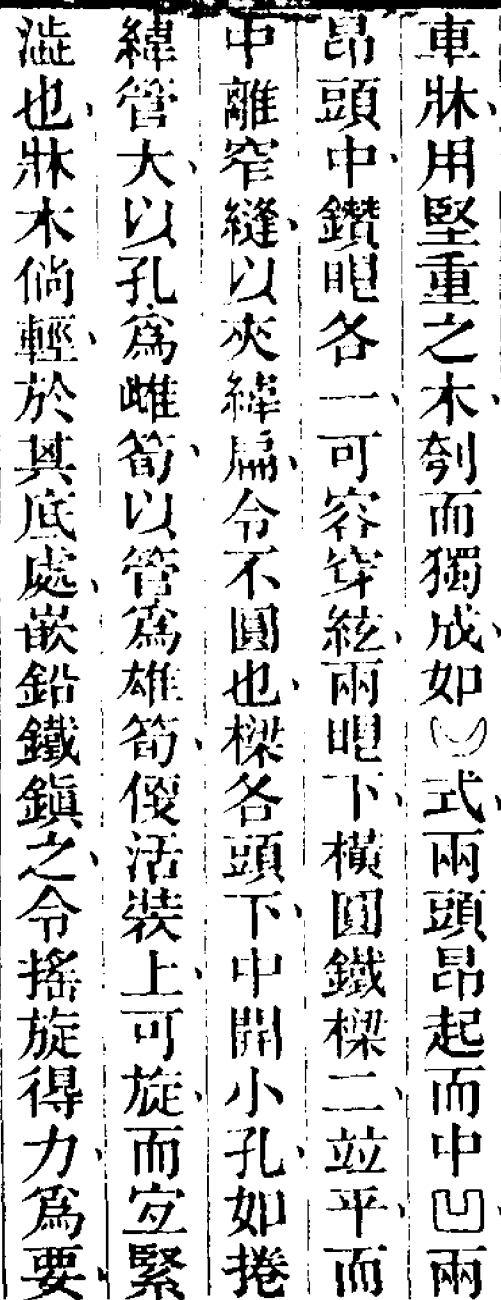 車牀、用堅重之木、刳而獨成、如式、兩頭昂起而中凹、兩
昂頭中、鑽睍各一、可容穿絃、兩睍下、橫圓鐵樑二、竝平、而
中離窄縫、以夾緯扁、令不圓也、樑各頭下、中開小孔、如捲
緯管大、以孔爲雌筍、以管爲雄筍、便活裝上、可旋、而寍緊
澁也、牀木倘輕、於其底處、嵌鉛鐵鎭之、令搖旋得力、爲要、